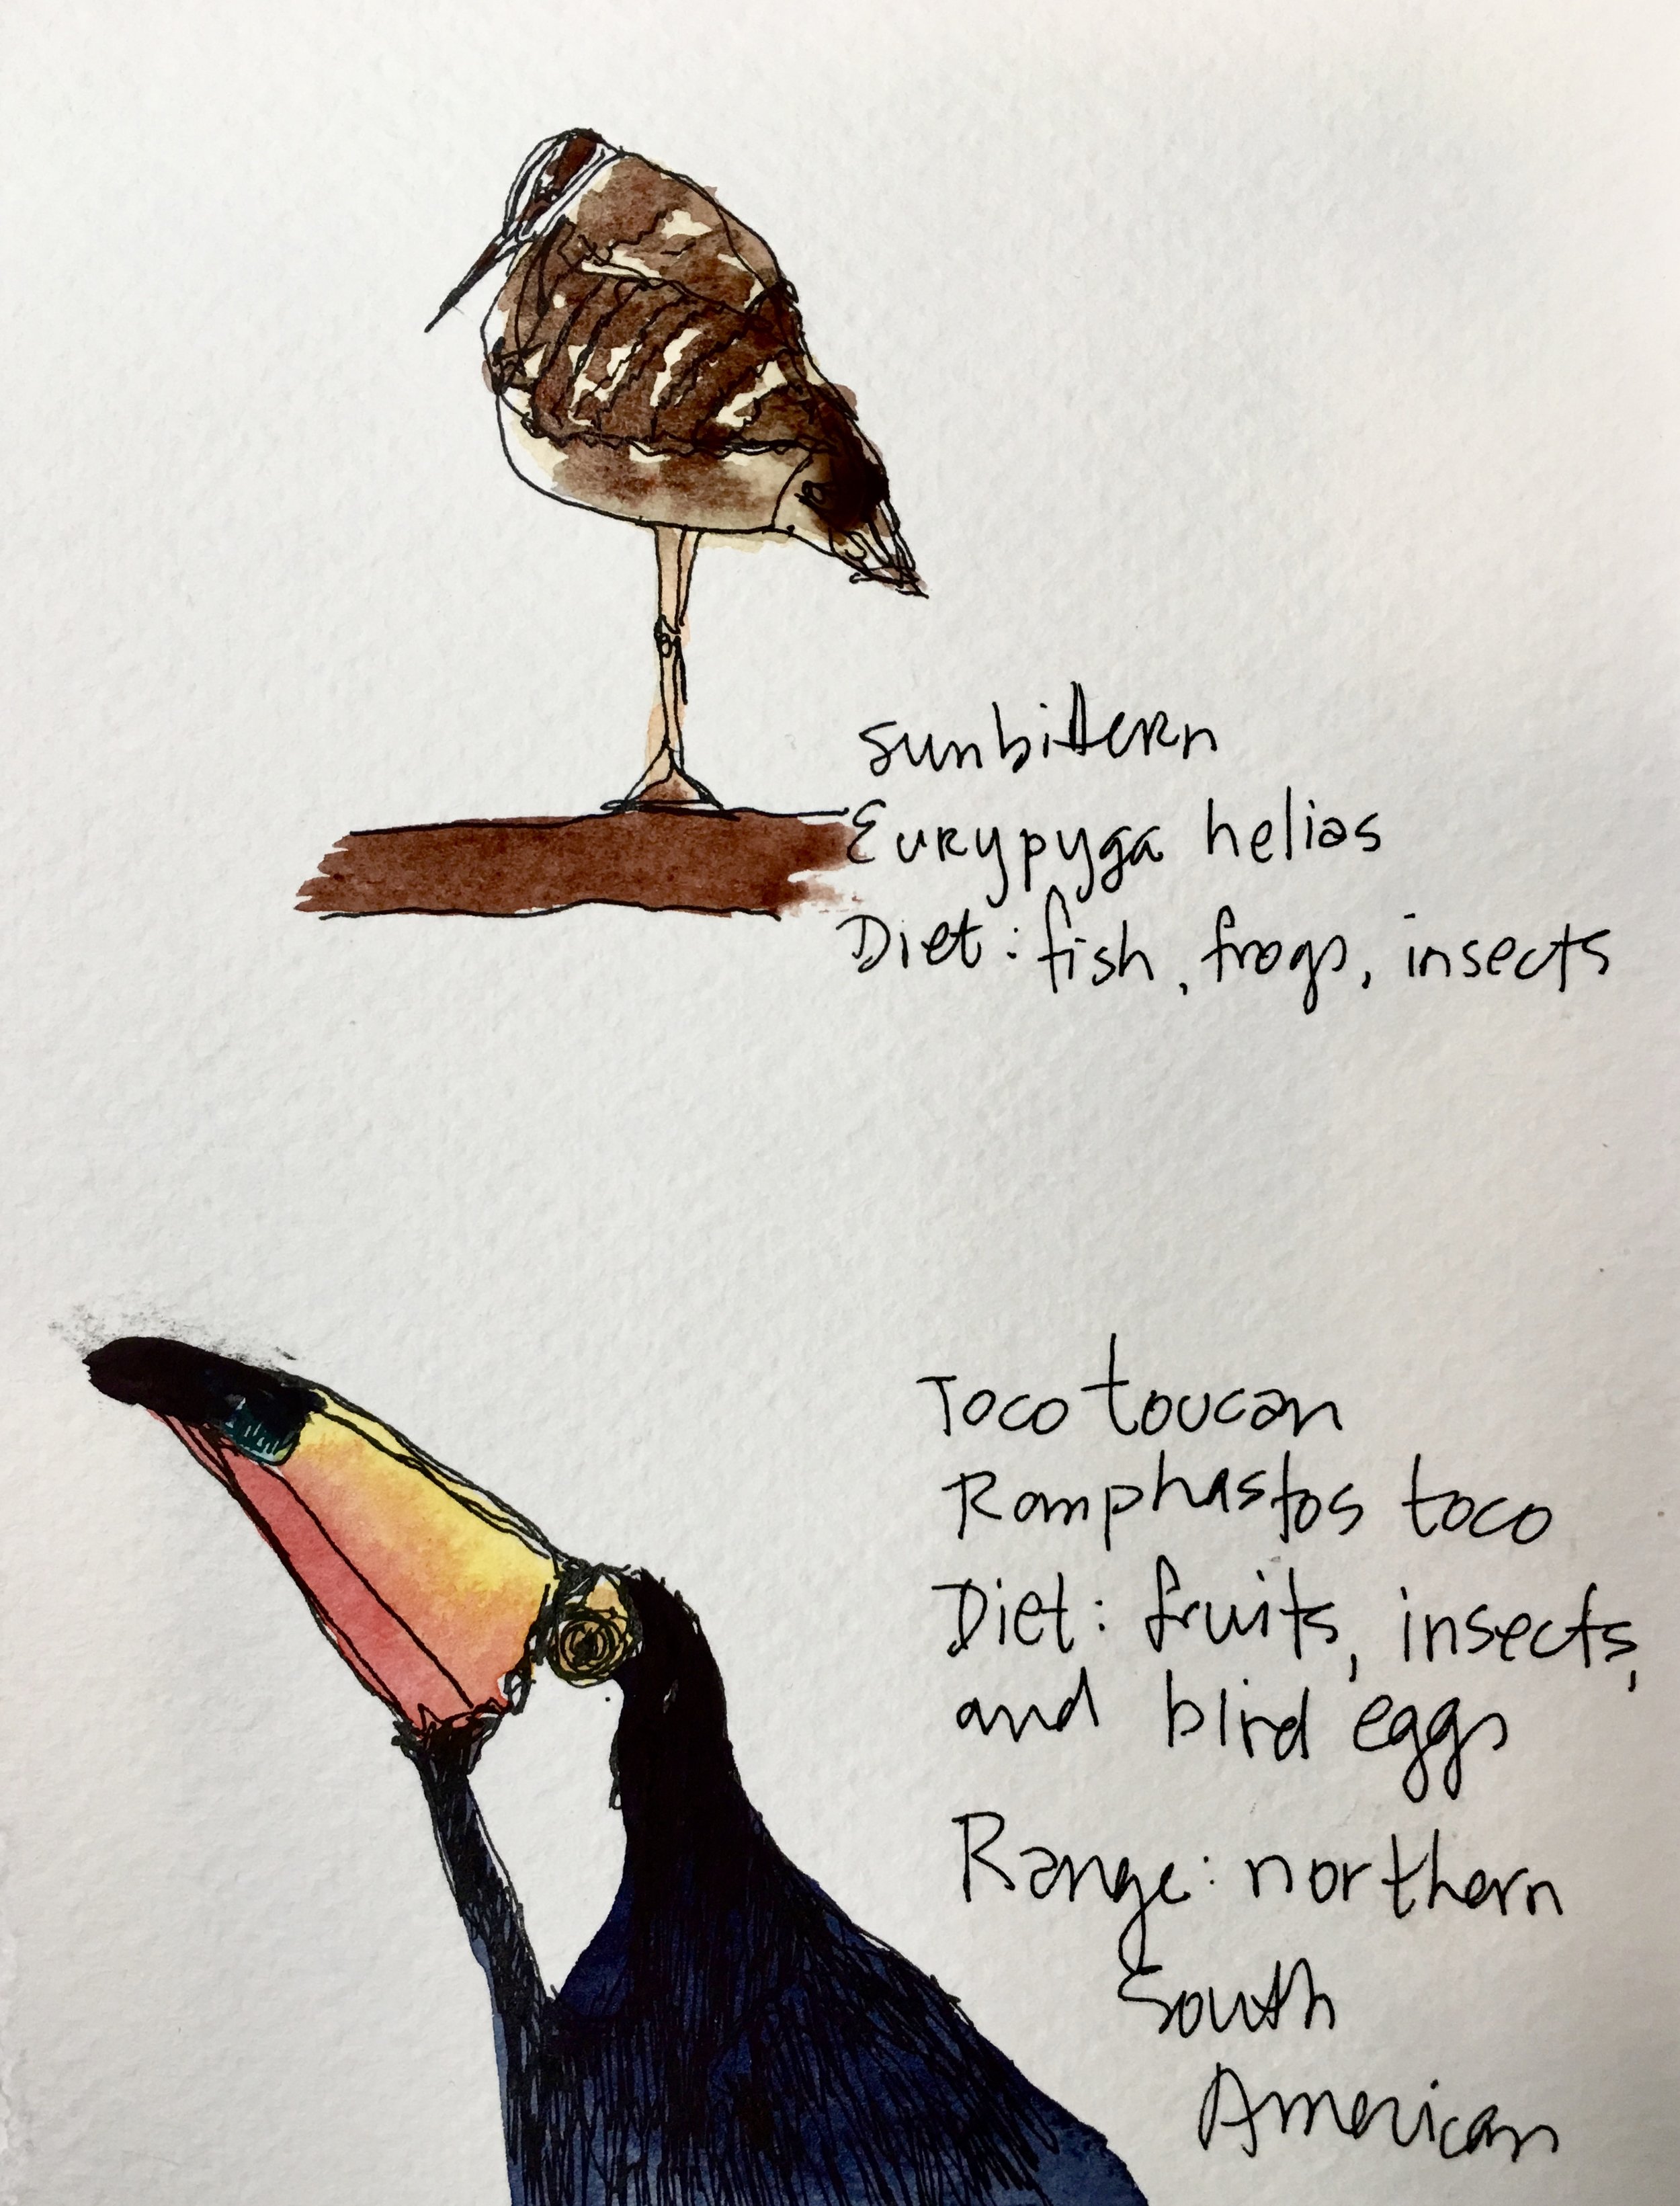 sunbittern
Eurypyga helias
Diet: fish, frogs, insects
Toco toucan
Ramphastos toco
Diet: fruits, insects,
and bird eggs
Range: northern
South
American